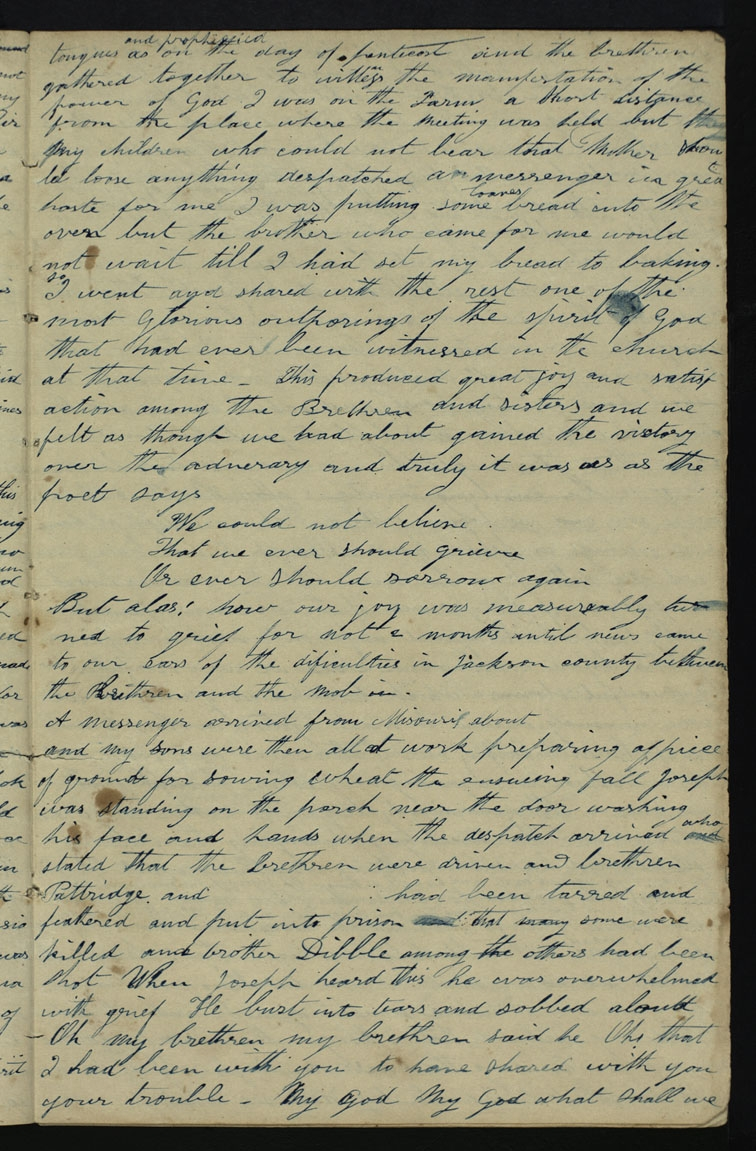 and prophesied
tongues as on the day of pentecost and the brethren
gathered together to witness the manifestation of the
power of God I was on the Farm, a short distance
from the place where the meeting was held but the
my children who could not bear that Mother should
be loose anything despatched a messenger in great
loaves
haste for me I was putting some bread into the
oven but the brother who came for me would
not wait till I had set my bread to baking.
so
I went and shared with the rest one of the
most Glorious outporings of the spirit of God
that had ever been witnessed in the church
at that time - This produced great joy and satisf
action among the Brethren and sisters and we
felt as though we had about gained the victory
over the adversary and truly it was as as the
poet says
We could not believe
That we ever should grieve
Or ever should sorrow again
But alas! how our joy was measureably tur
ned to grief for not 2 months until news came
to our ears of the dificulties in Jackson county between
the Brethren and the mob in.
A messenger arrived from Misouri about
and my sons were then all at work preparing a piece
of ground for sowing wheat the ensueing fall Joseph
was standing on the porch near the door washing
his face and hands when the despatch arrived who
stated that the brethren were driven and brethren
Pattridge and had been tarred and
feathered and put into prison that many some were
killed and brother Dibble among the others had been
shot When Joseph heard this he was overwhelmed
with grief He burst into tears and sobbed aloud
Oh my brethren my brethren said he Oh that
I had been with you to have shared with you
your trouble - My God My God what shall we